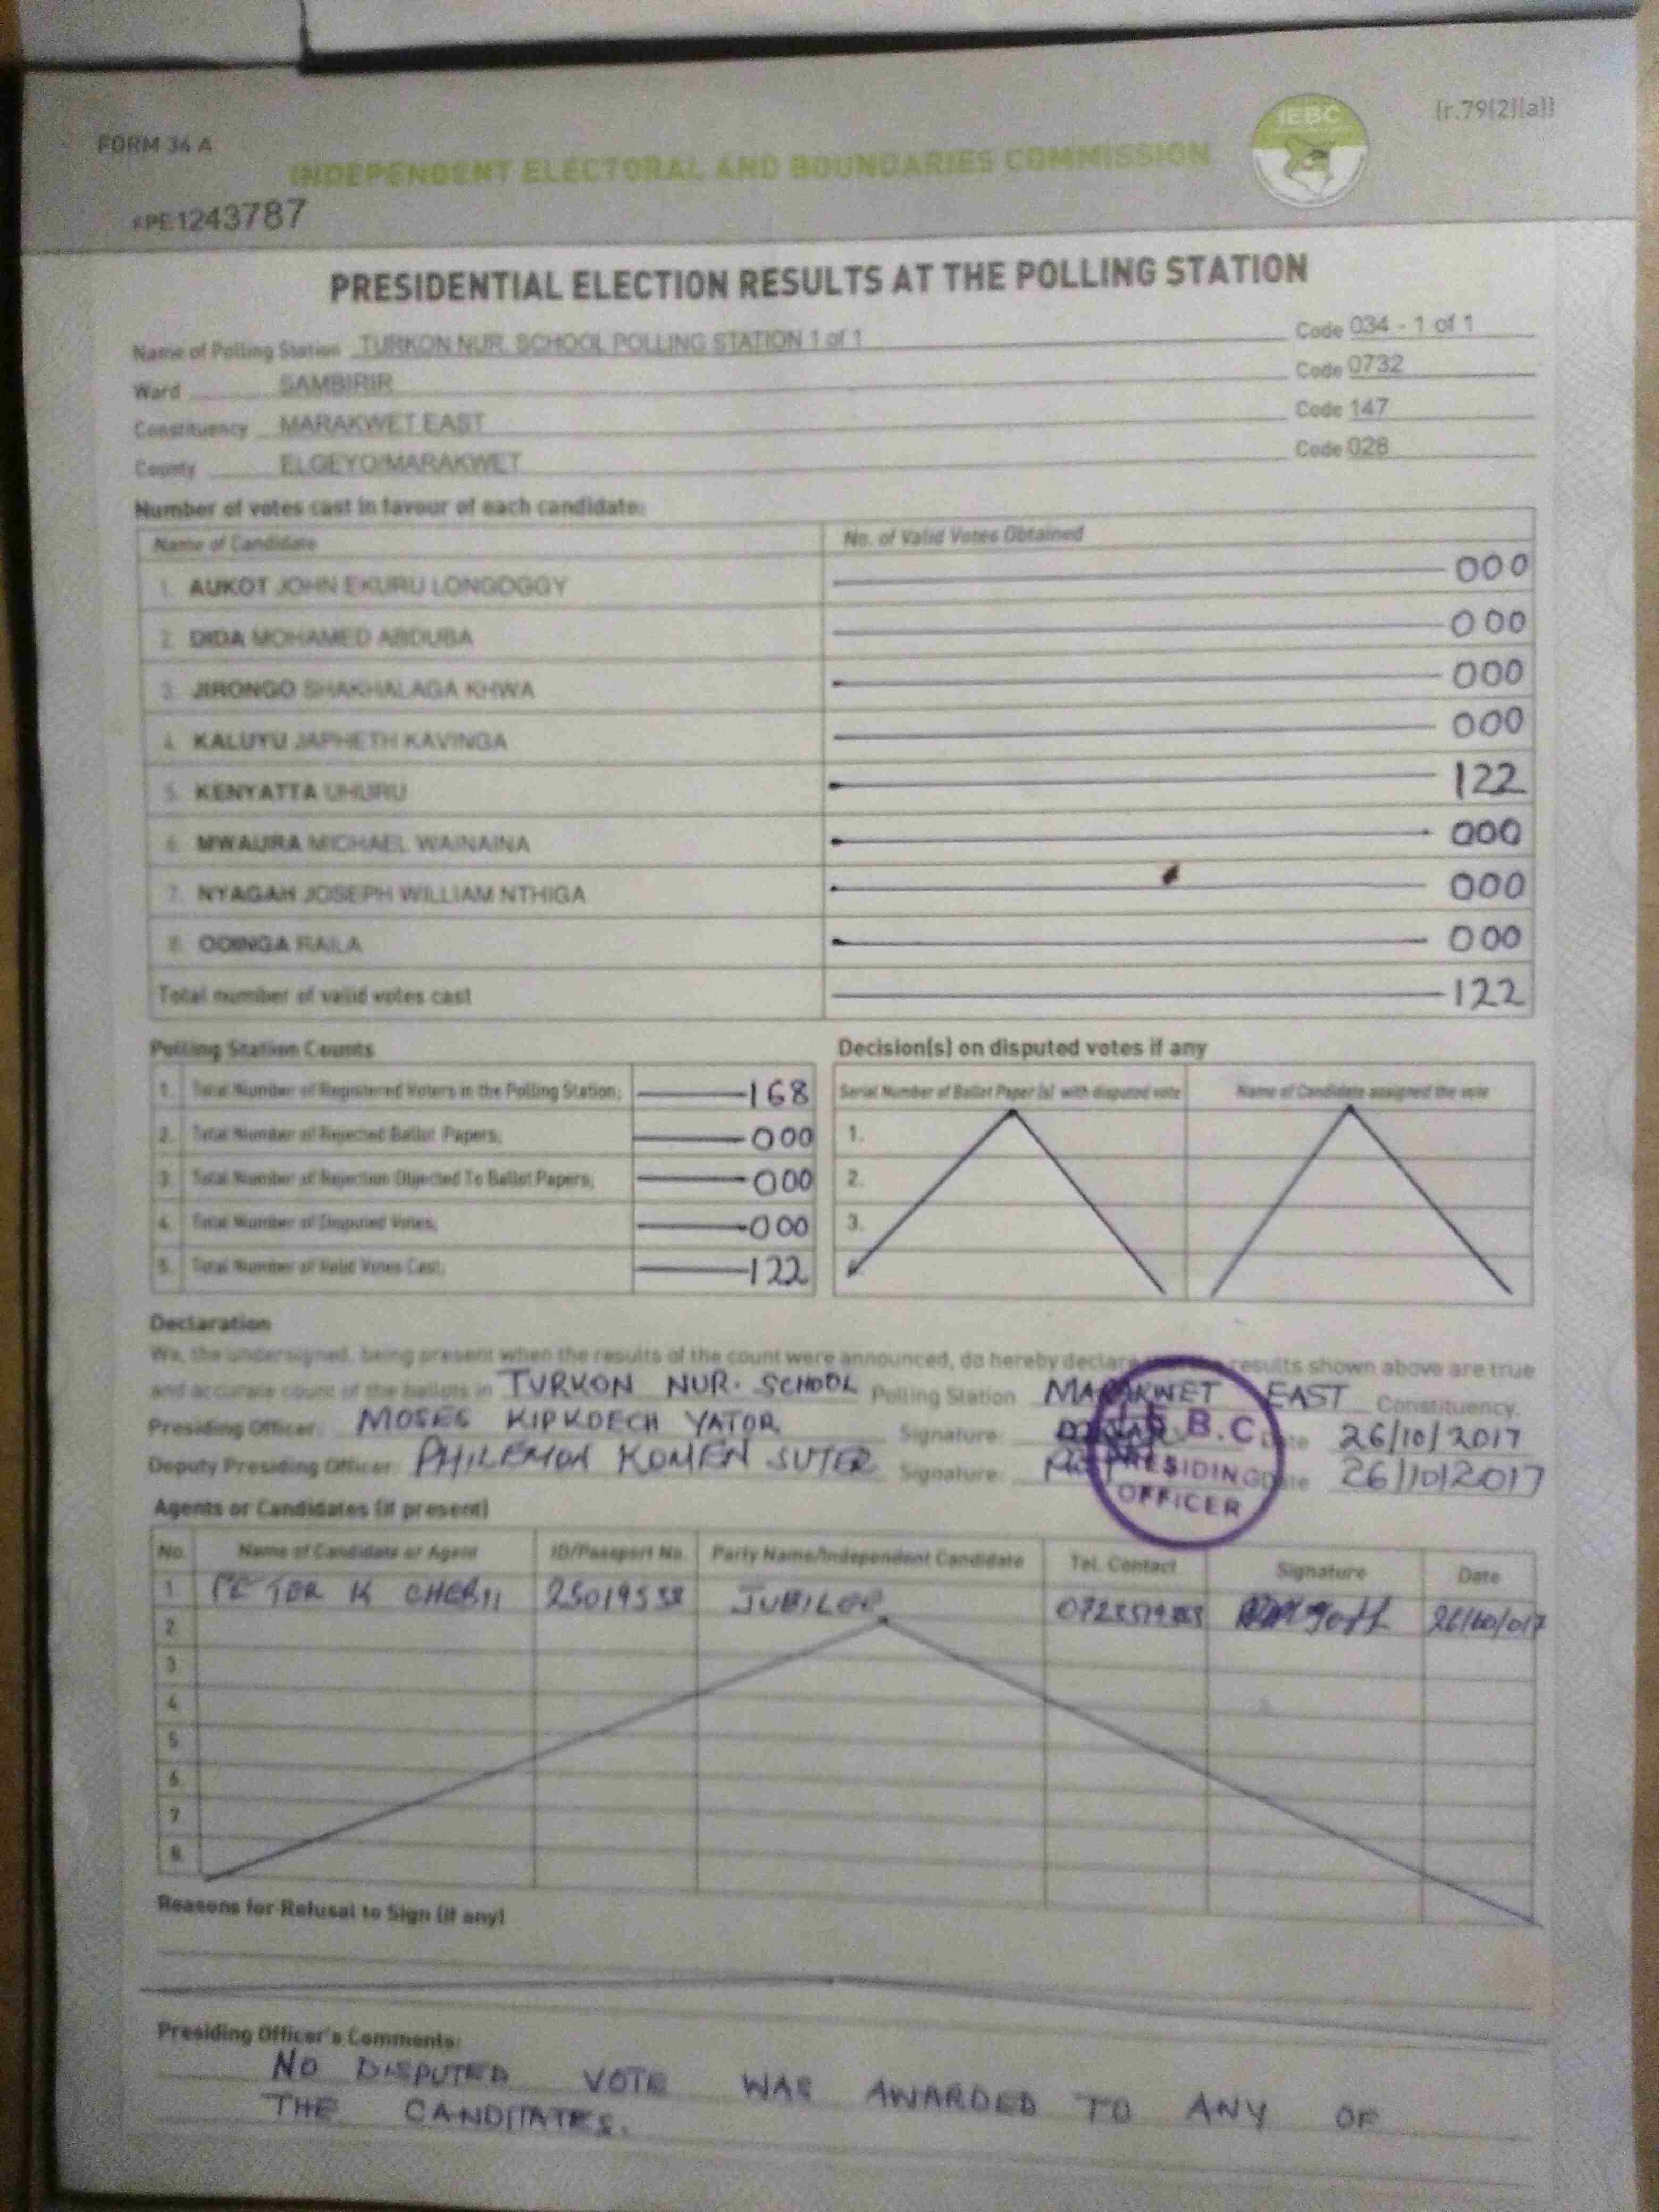 {r.79(2)(a)}
FORM 34 A
IEBC
INDEPENDENT ELECTORAL AND BOUNDARIES COMMISSION
FPE1243787
PRESIDENTIAL ELECTION RESULTS AT THE POLLING STATION
Name of Polling Station TURKON NUR. SCHOOL POLLING STATION 1 of 1 Code 034 - 1 of 1
Ward SAMBIRIR Code 0732
Constituency MARAKWET EAST Code 147
County ELGEYO/MARAKWET Code 028
Number of votes cast in favour of each candidate:
Name of Candidate No. of Valid Votes Obtained
1. AUKOT JOHN EKURU LONGOGGY 000
2. DIDA MOHAMED ABDUBA 000
3. JIRONGO SHAKHALAGA KHWA 000
4. KALUYU JAPHETH KAVINGA 000
5. KENYATTA UHURU 122
6. MWAURA MICHAEL WAINAINA 000
7. NYAGAH JOSEPH WILLIAM NTHIGA 000
8. ODINGA RAILA 000
Total number of valid votes cast 122
Polling Station Counts
1. Total Number of Registered Voters in the Polling Station; 168
2. Total Number of Rejected Ballot Papers; 000
3. Total Number of Rejection Objected To Ballot Papers; 000
4. Total Number of Disputed Votes; 000
5. Total Number of Valid Votes Cast; 122
Decision(s) on disputed votes if any
Serial Number of Ballot Paper (s) with disputed vote Name of Candidate assigned the vote
1.
2.
3.
Declaration
We, the undersigned, being present when the results of the count were announced, do hereby declare that the results shown above are true
and accurate count of the ballots in TURKON NUR. SCHOOL Polling Station MARAKWET EAST Constituency.
Presiding Officer: MOSES KIPKOECH YATOR Signature: Date 26/10/2017
Deputy Presiding Officer: PHILEMON KOMEN SUTER Signature: Date 26/10/2017
I.E.B.C
PRESIDING
OFFICER
Agents or Candidates (if present)
No. Name of Candidate or Agent ID/Passport No. Party Name/Independent Candidate Tel. Contact Signature Date
1 PETER K JUBILEE 26/10/017
2
3
4
5
6
7
8
Reasons for Refusal to Sign (if any)
Presiding Officer's Comments:
NO DISPUTED VOTE WAS AWARDED TO ANY OF
THE CANDITATES.